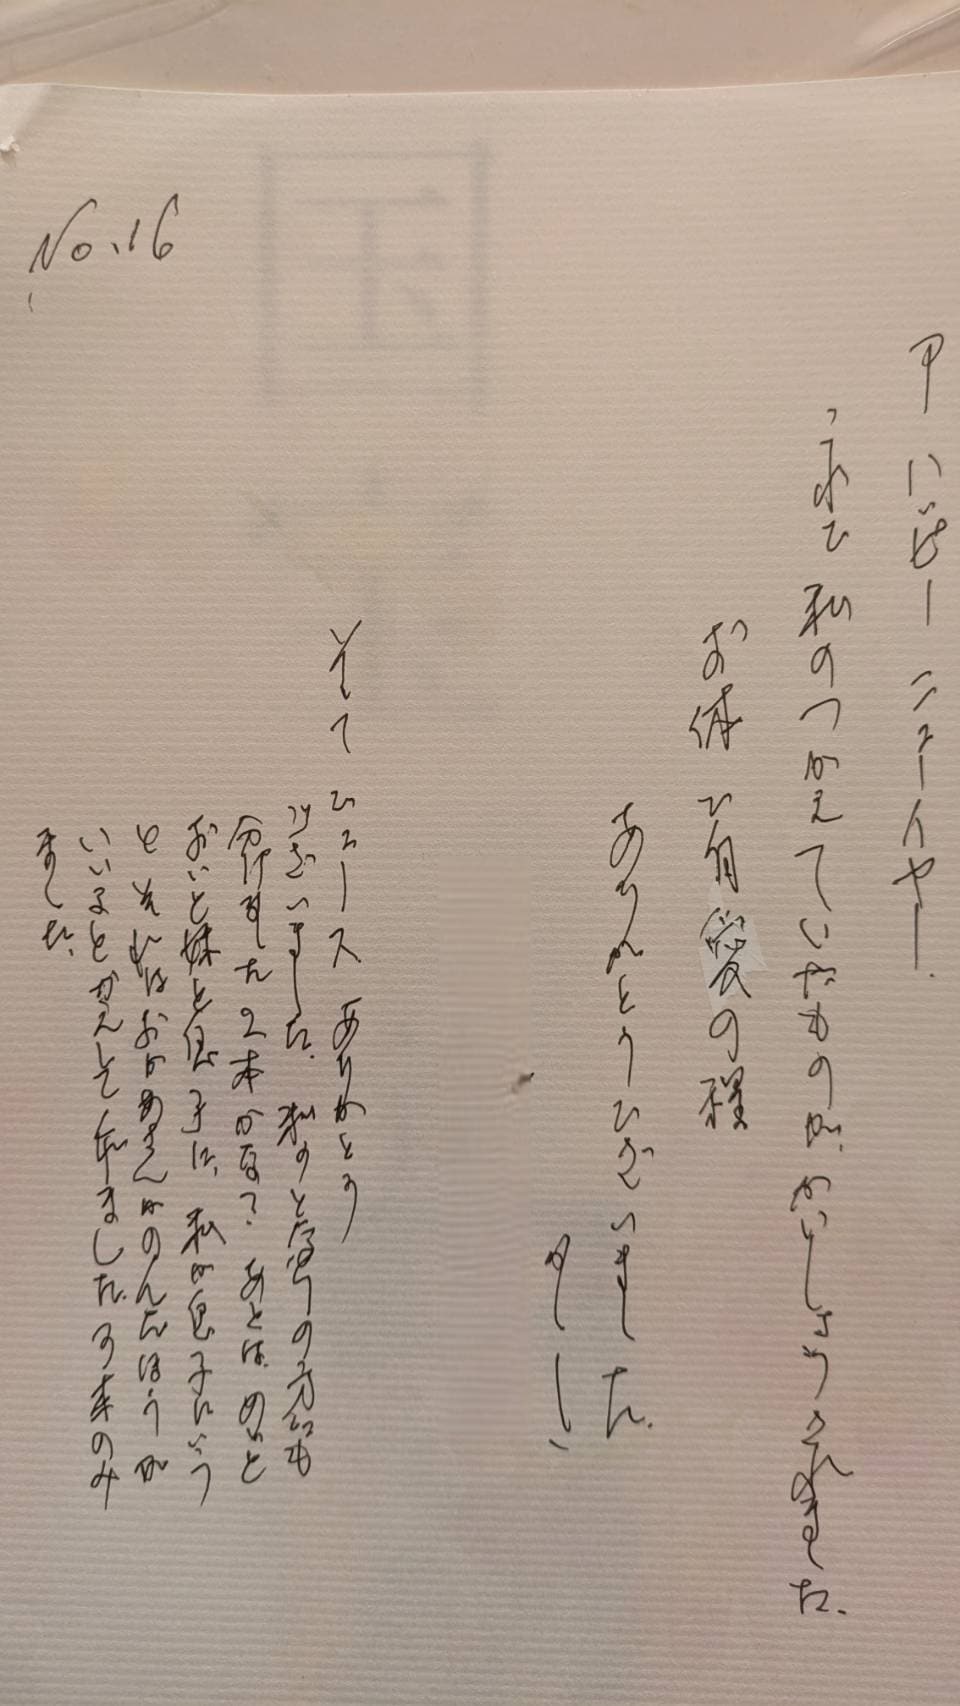 No.16
アハッピーニューイヤー.
私のつかえていたものが、かいしょうされました.
お体ご自愛の程
ありがとうございました.
かしこ
そしてジュース ありがとう
ございました. 私のと
ました 2本かな? あとは、めいと
おいと妹と息子に、私が息子にいう
と それはおかあさんがのんだほうが
いいるとかえして来ました. 3本のみ
ました.